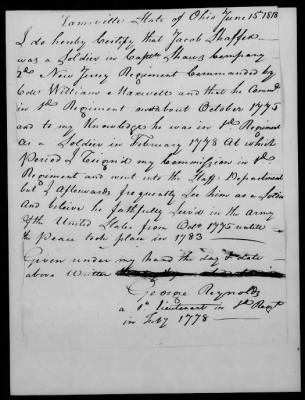 Zanesville State of Ohio June 15th 1818
I do hereby Certify that Jacob Shaffer
was a Soldier in Captn Shaws Company
2d New Jersey Regiment Commanded by
Colo William Maxwells and that he Came
in sd Regiment about October 1775
and to my Knowledge he was in sd Regiment
as a Soldier in February 1778 At which
Period I Resignd my Commission in sd
Regiment and went into the Staff Department
but I Afterwards frequently See him as a Soldier
and believe he faithfully Servd in the army
of the United States from Octr 1775 untill
the Peace took place in 1783
Given under my hand the day & date
above Written
George Reynolds
a 1st Lieutenant in sd Regt
in Feby 1778